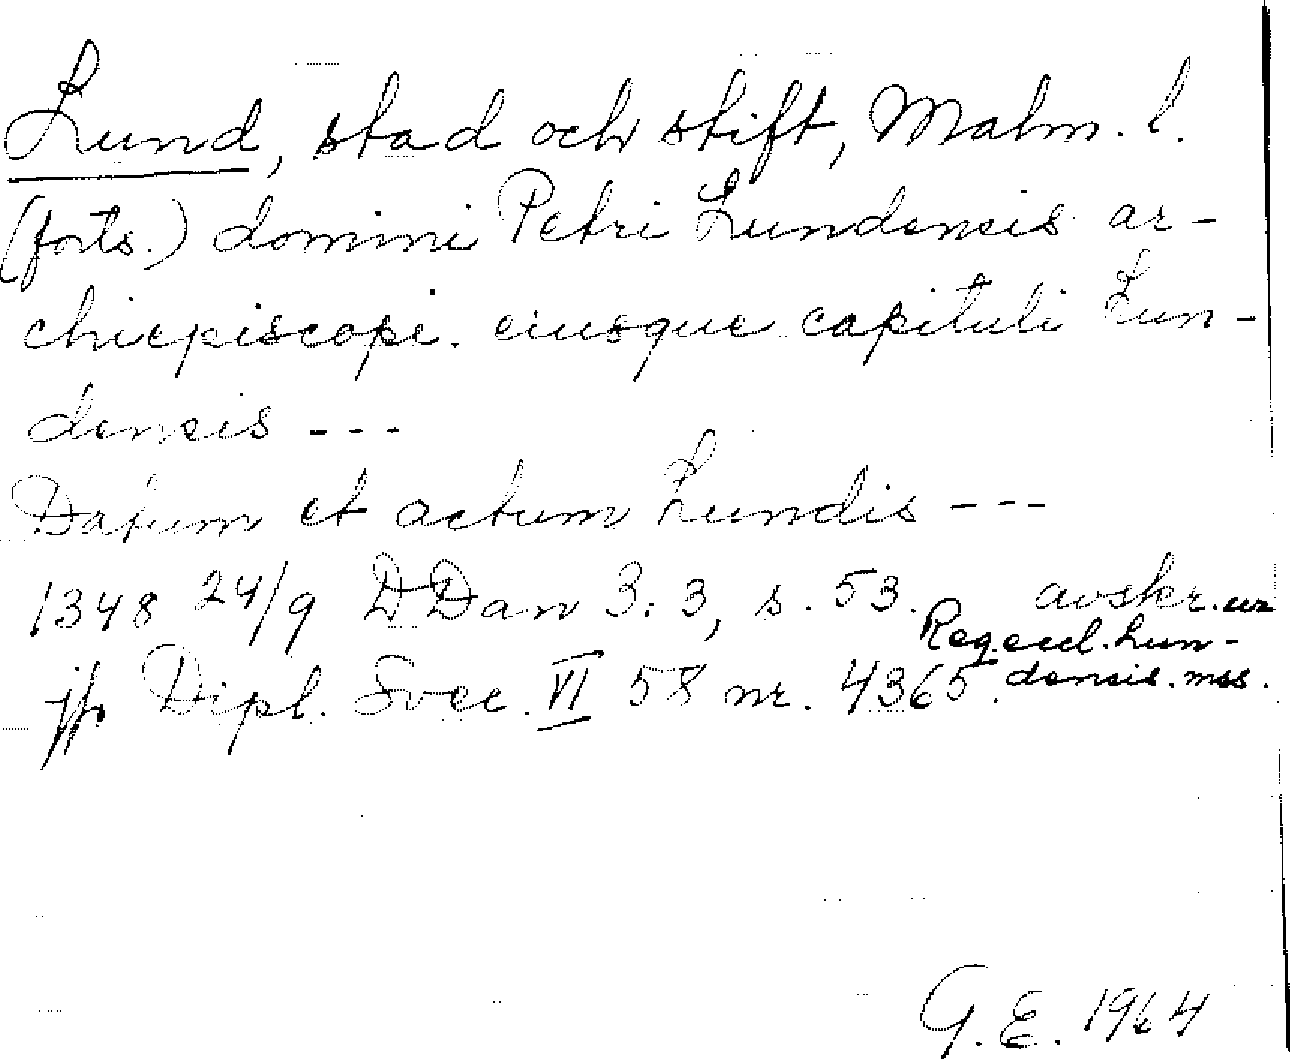 Lund, stad och stift, Malm. l.
(forts.) domini Petri Lundensis ar-
chiepiscopi. eiusque capituli Lun-
densis ---
Datum et actum Lundis ---
1348 24/9 DDan 3:3, s. 53. avskr. ur
Reg. eccl. Lun-
jfr Dipl. Svec. VI 58 nr. 4365. densis. mss.
G.E. 1964